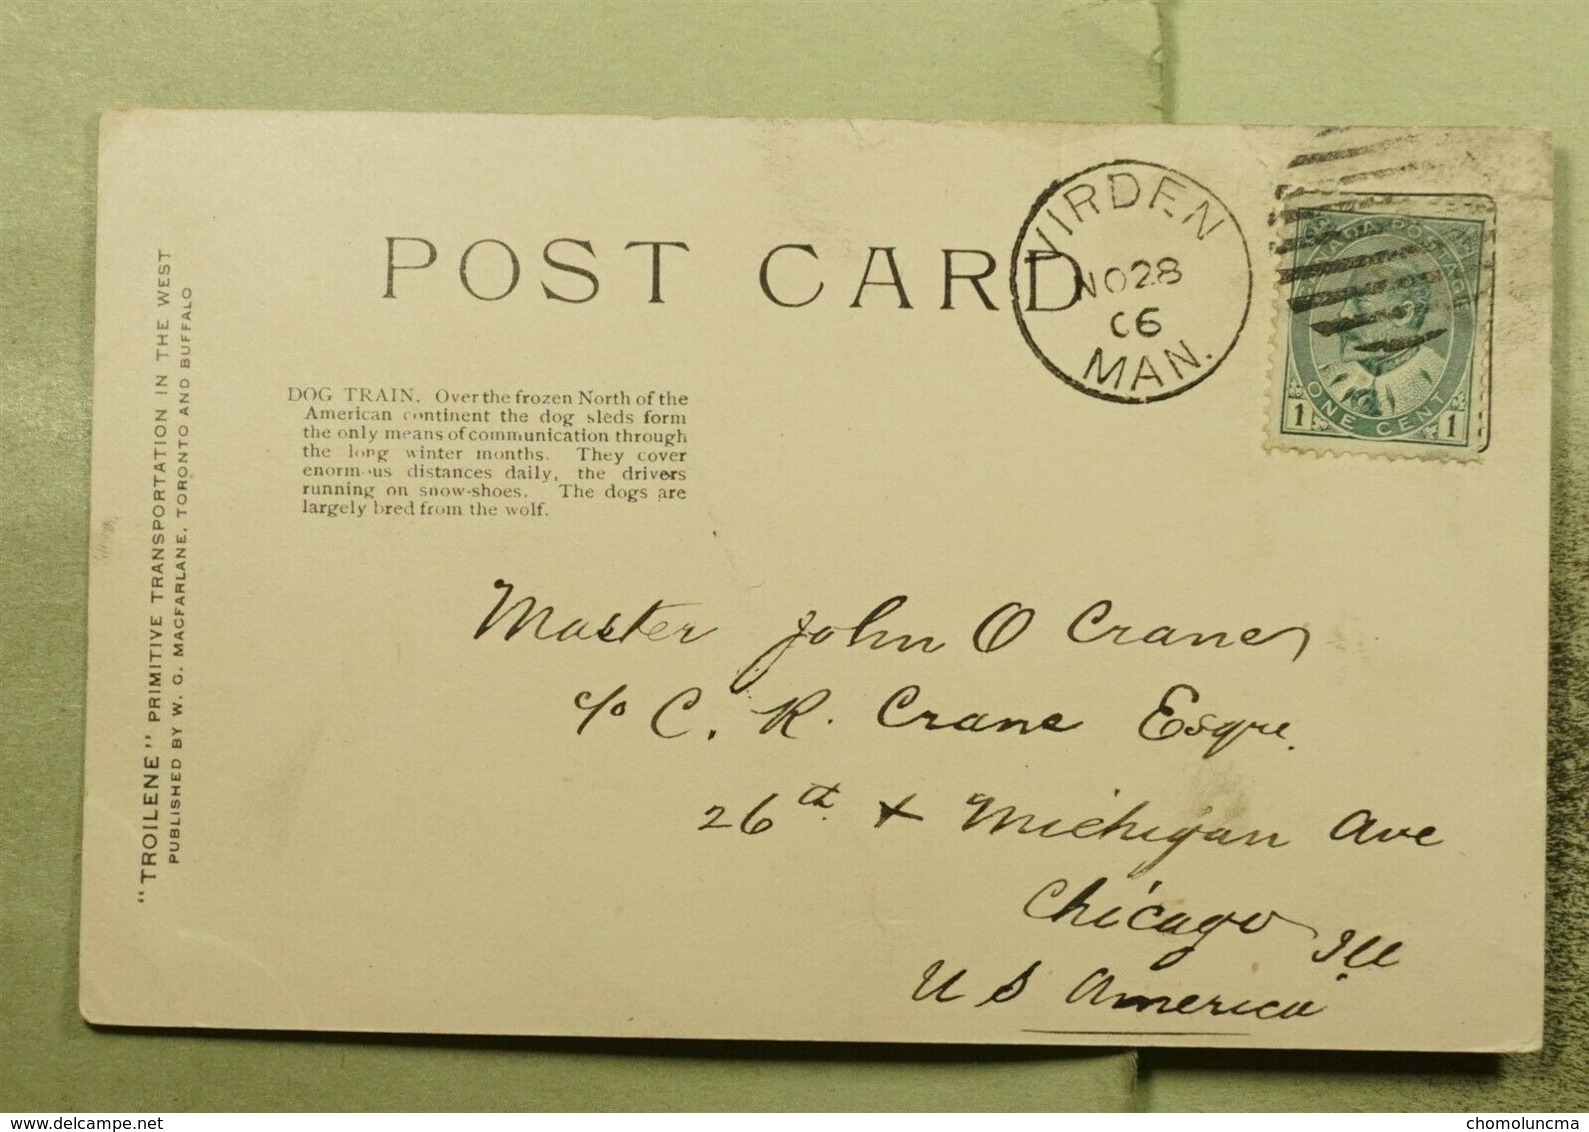 POST CARD
VIRDEN
NO 28
06
MAN.
CANADA POSTAGE
1 ONE CENT 1
DOG TRAIN. Over the frozen North of the
American continent the dog sleds form
the only means of communication through
the long winter months. They cover
enormous distances daily, the drivers
running on snow-shoes. The dogs are
largely bred from the wolf.
"TROILENE" PRIMITIVE TRANSPORTATION IN THE WEST
PUBLISHED BY W. G. MACFARLANE, TORONTO AND BUFFALO
Master John O Crane,
c/o C. R. Crane Esqre.
26th + Michigan Ave
Chicago Ill
U S America
delcampe.net
chomoluncma